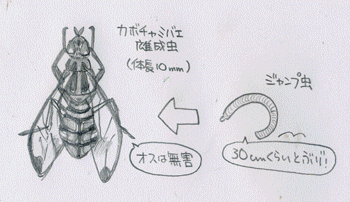 カボチャミバエ
雄成虫
(体長10mm)
ジャンプ虫
オスは無害
30cmくらいとぶり!